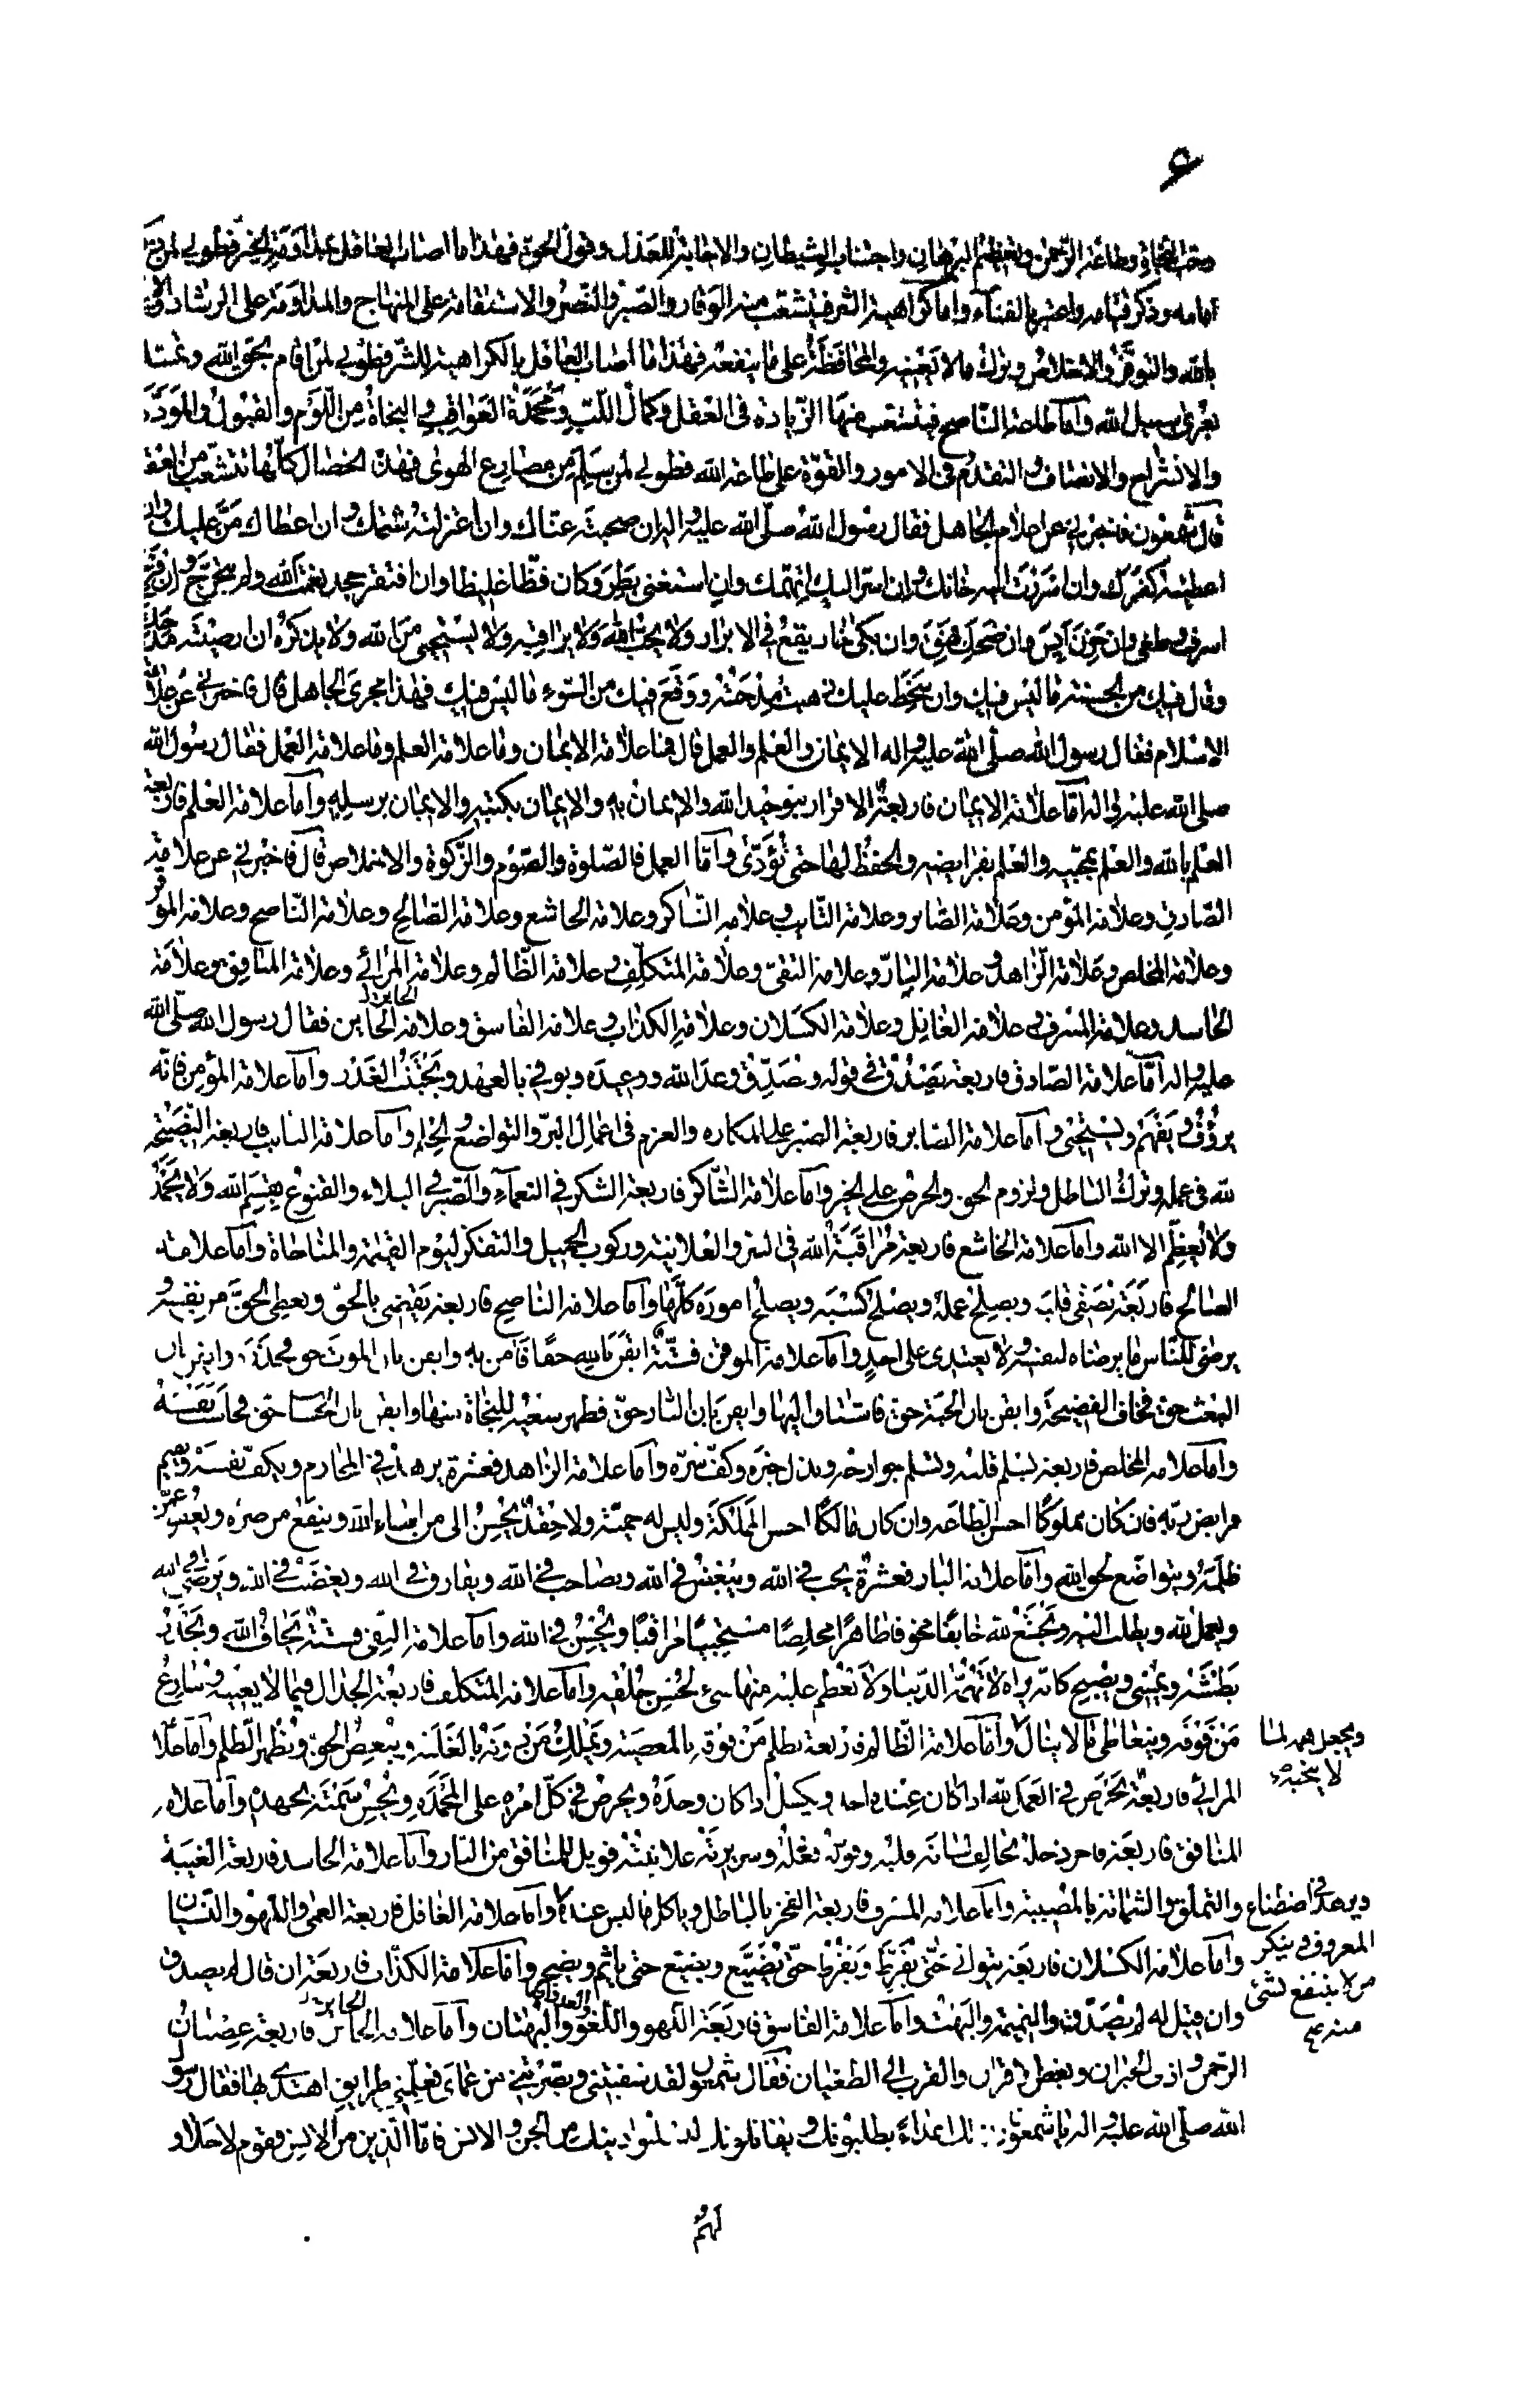 ۶
وحب النجاة وطاعة الرحمن وتعظيم البرهان واجتناب الشيطان والاجابة للعدل وقول الحق فهذا ما اصاب العاقل بمداومة الخير فطوبى لمن ذكر
امامه وذكر قيامه واعتبر بالفناء واما كراهية الشر فيتشعب منه الوقار والصبر والنصر والاستقامة على المنهاج والمداومة على الرشاد والايمان
بالله والتوفر والاخلاص وترك ما لا يعنيه والمحافظة على ما ينفعه فهذا ما اصاب العاقل بالكراهية للشر فطوبى لمن اقام بحق الله وتمسك
بعرى سبيل الله واما طاعة الناصح فيتشعب منها الزيادة فى العقل وكمال اللب ومحمدة العواقب والنجاة من اللوم والقبول والمودة
والانشراح والانصاف والتقدم فى الامور والقوة على طاعة الله فطوبى لمن سلم من مصارع الهوى فهذه الخصال كلها تتشعب من العقل
قال شمعون فاخبرنى عن اعلام الجاهل فقال رسول الله صلى الله عليه واله ان صحبته عناك وان اعتزلته شتمك وان اعطاك من عليك وان
اعطيته كفرك وان اسررت اليه خانك وان اسر اليك اتهمك وان استغنى بطر وكان فظا غليظا وان افتقر جحد نعمة الله ولم يتحرج وان فرح
اسرف وطغى وان حزن ايس وان ضحك فهق وان بكى خار يقع فى الابرار ولا يحب الله ولا يراقبه ولا يستحيى من الله ولا يذكره ان ارضيته مدحك
وقال فيك من الحسنة ما ليس فيك وان سخط عليك ذهبت مدحته ووقع فيك من السوء ما ليس فيك فهذا مجرى الجاهل قال فاخبرنى عن علامة
الاسلام فقال رسول الله صلى الله عليه واله الايمان والعلم والعمل قال فما علامة الايمان وما علامة العلم وما علامة العمل فقال رسول الله
صلى الله عليه واله اما علامة الايمان فاربعة الاقرار بتوحيد الله والايمان به والايمان بكتبه والايمان برسله واما علامة العلم فاربعة
العلم بالله والعلم بمحبيه والعلم بفرايضه والحفظ لها حتى تؤدى واما العمل فالصلوة والصوم والزكوة والاخلاص قال فاخبرنى عن علامة
الصادق وعلامة المؤمن وعلامة الصابر وعلامة التايب وعلامة الشاكر وعلامة الخاشع وعلامة الصالح وعلامة الناصح وعلامة الموقن
وعلامة المخلص وعلامة الزاهد وعلامة البار وعلامة التقى وعلامة المتكلف وعلامة الظالم وعلامة المرائى وعلامة المنافق وعلامة
الحاسد وعلامة المسرف وعلامة الغافل وعلامة الكسلان وعلامة الكذاب وعلامة الفاسق وعلامة الخاين فقال رسول الله صلى الله
عليه واله اما علامة الصادق فاربعة يصدق فى قوله ويصدق وعد الله ووعيده ويوفى بالعهد ويجتنب الغدر واما علامة المؤمن فانه
يرؤف ويفهم ويستحيى واما علامة الصابر فاربعة الصبر على المكاره والعزم فى اعمال البر والتواضع والحلم واما علامة التايب فاربعة النصيحة
لله فى عمله وترك الباطل ولزوم الحق والحرص على الخير واما علامة الشاكر فاربعة الشكر فى النعماء والصبر فى البلاء والقنوع بقسم الله ولا يحمد
ولا يعظم الا الله واما علامة الخاشع فاربعة مراقبة الله فى السر والعلانية وركوب الجميل والتفكر ليوم القيمة والمناجاة واما علامة
الصالح فاربعة يصفى قلبه ويصلح عمله ويصلح كسبه ويصلح اموره كلها واما علامة الناصح فاربعة يقضى بالحق ويعطى الحق من نفسه و
يرضى للناس ما يرضاه لنفسه ولا يعتدى على احد واما علامة الموقن فستة ايقن بالله حقا فامن به وايقن بان الموت حق فحذره وايقن بان
البعث حق فخاف الفضيحة وايقن بان الجنة حق فاشتاق اليها وايقن بان النار حق فظهر سعيه للنجاة منها وايقن بان الحساب حق فحاسب نفسه
واما علامة المخلص فاربعة يسلم قلبه وتسلم جوارحه وبذل خيره وكف شره واما علامة الزاهد فعشرة يزهد فى المحارم ويكف نفسه ويقيم
فرايض ربه فان كان مملوكا احسن الطاعة وان كان مالكا احسن المملكة وليس له حمية ولا حقد يحسن الى من اساء اليه وينفع من ضره ويعفو عمن
ظلمه ويتواضع لحق الله واما علامة البار فعشرة يحب فى الله ويبغض فى الله ويصاحب فى الله ويفارق فى الله ويغضب فى الله ويرضى فى الله
ويعمل لله ويطلب اليه ويخشع لله خايفا مخوفا طاهرا مخلصا مستحييا مراقبا ويحسن فى الله واما علامة التقى فستة يخاف الله ويحذر
بطشه ويمسى ويصبح كانه يراه لا تهمه الدنيا ولا تعظم عليه منها شىء لحسن خلقه واما علامة المتكلف فاربعة الجدال فيما لا يعنيه وينازع
من فوقه ويتعاطى ما لا ينال واما علامة الظالم فاربعة يظلم من فوقه بالمعصية ويملك من دونه بالغلبة ويبغض الحق ويظهر الظلم واما علامة
ويجعل همه لما
لا ينجيه
المرائى فاربعة يحرص فى العمل لله اذا كان عنده احد ويكسل اذا كان وحده ويحرص فى كل امره على المحمدة ويحسن سمته بجهده واما علامة
المنافق فاربعة فاجر دخله يخالف لسانه قلبه وقوله فعله وسريرته علانيته فويل للمنافق من النار واما علامة الحاسد فاربعة الغيبة
والتملق والشماتة بالمصيبة واما علامة المسرف فاربعة الفخر بالباطل وياكل ما ليس عنده واما علامة الغافل فاربعة العمى والسهو واللهو والنسيان
ويزهد فى اصطناع
المعروف وينكر
من لا ينتفع بشىء
منه
واما علامة الكسلان فاربعة يتوانى حتى يفرط ويفرط حتى يضيع ويضيع حتى ياثم ويضجر واما علامة الكذاب فاربعة ان قال لم يصدق
وان قيل له لم يصدق والنميمة والبهت واما علامة الفاسق فاربعة اللهو واللغو والعدوان والبهتان واما علامة الجائر فاربعة عصيان
الرحمن واذى الجيران وبغض القران والقرب الى الطغيان فقال شمعون لقد شفيتنى وبصرتنى من عماى فعلمنى طرايق اهتدى بها فقال رسول
الله صلى الله عليه واله يا شمعون ان لك اعداء يطلبونك ويقاتلونك ليسلبوا دينك من الجن والانس فاما الذين من الانس فقوم لا خلاق
لهم